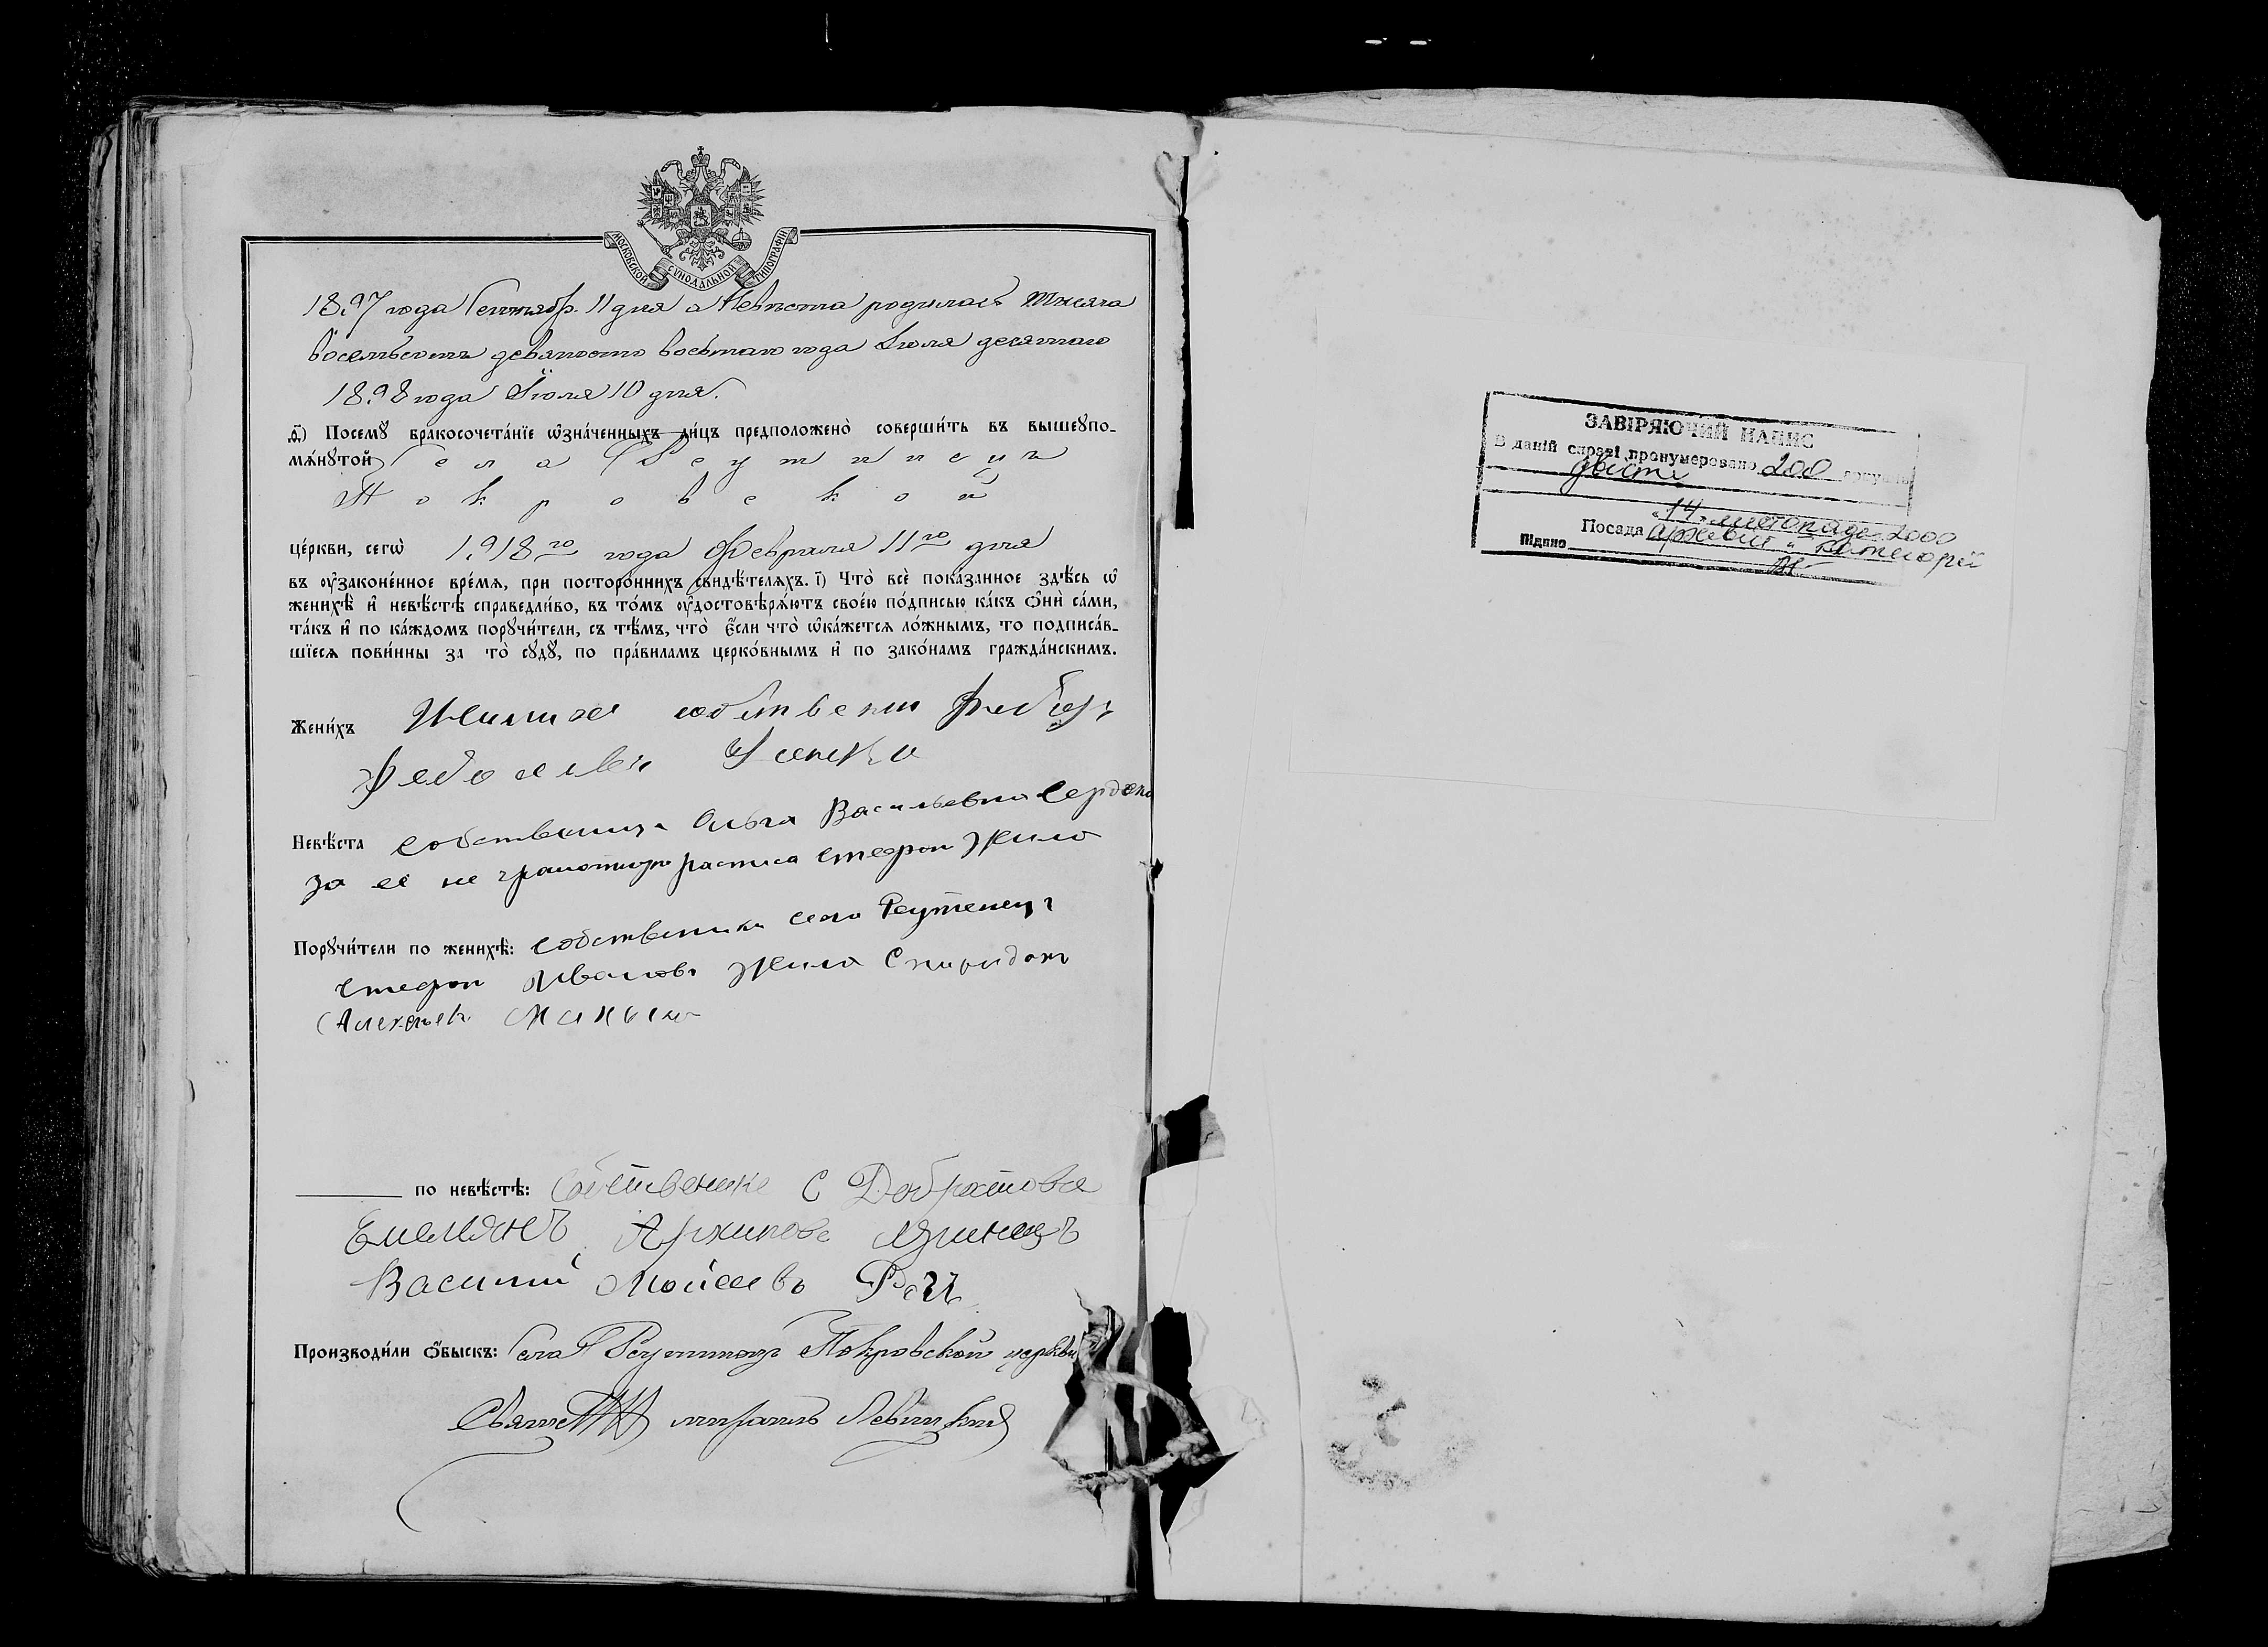 МОСКОВСКОЙ СѴНОДАЛЬНОЙ ТИПОГРАФІИ
1897 года Сентябр. 11 дня а Невѣста родилась тысяча
восемьсотъ девяносто восьмаго года Іюля десятаго
1898 года Іюля 10 дня.
ѳ҃) Посемꙋ̀ бракосочета́нїе ѡ҆зна́ченныхъ ли́цъ предположено̀ соверши́ть въ вышеꙋпо-
мѧ́нꙋтой Села Реутинецъ
Покровской
це́ркви, сегѡ̀ 1918го года Февраля 11го дня
въ ᲂу҆законе́нное вре́мѧ, при посторо́ннихъ свидѣ́телѧхъ. і҃) Что̀ всѐ пока́занное здѣ́сь ѡ҆
женихѣ̀ и҆ невѣ́стѣ справедли́во, въ то́мъ ᲂу҆достовѣрѧ́ютъ свое́ю по́дписью ка́къ ѻ҆нѝ са́ми,
та́къ и҆ по ка́ждомъ порꙋчи́тели, съ тѣ́мъ, что̀ є҆́сли что̀ ѡ҆ка́жетсѧ ло́жнымъ, то подписа́в-
шїесѧ пови́нны за то̀ сꙋдꙋ̀, по пра́виламъ церко́внымъ и҆ по зако́намъ гражда́нскимъ.
Жени́хъ
Невѣ́ста собственица Ольга Васильевна Сердюко
за ее не грамотную росписа Стефон Жило
Порꙋчи́тели по женихѣ̀: собственики село Реутенец
Стефон Ивановъ Жило Спиридон
Алексѣев
по невѣ́стѣ: Собственике С Добротова
Емельянъ Архипове
Василий Мойсеевъ
Производи́ли ѻ҆́быскъ: Села Реутинецъ Покровской церкви
Левицкий
ЗАВІРЯЮЧИЙ НАПИС
В даній справі пронумеровано 200 аркушів
двісті
14 листопада 2000
Посада архівіст категорії
Підпис